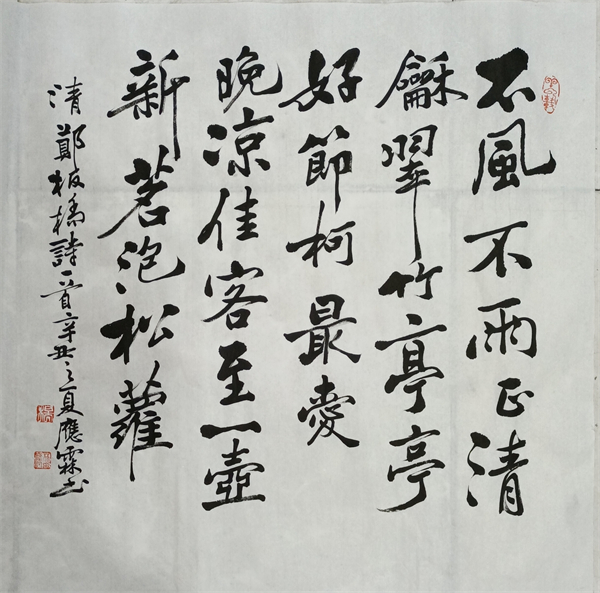 不風不雨正清
龢翠竹亭亭
好節柯最愛
晚凉佳客至一壺
新茗泡松蘿
清鄭板橋詩一首辛丑之夏應霖书